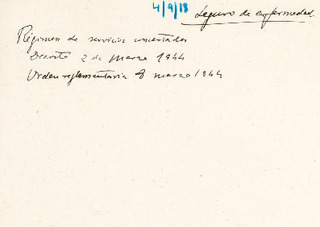 4/9/18
Seguro de enfermedad.
Régimen de servicios concertados
Decreto 2 de Marzo 1944
Orden reglamentaria 8 marzo 1944